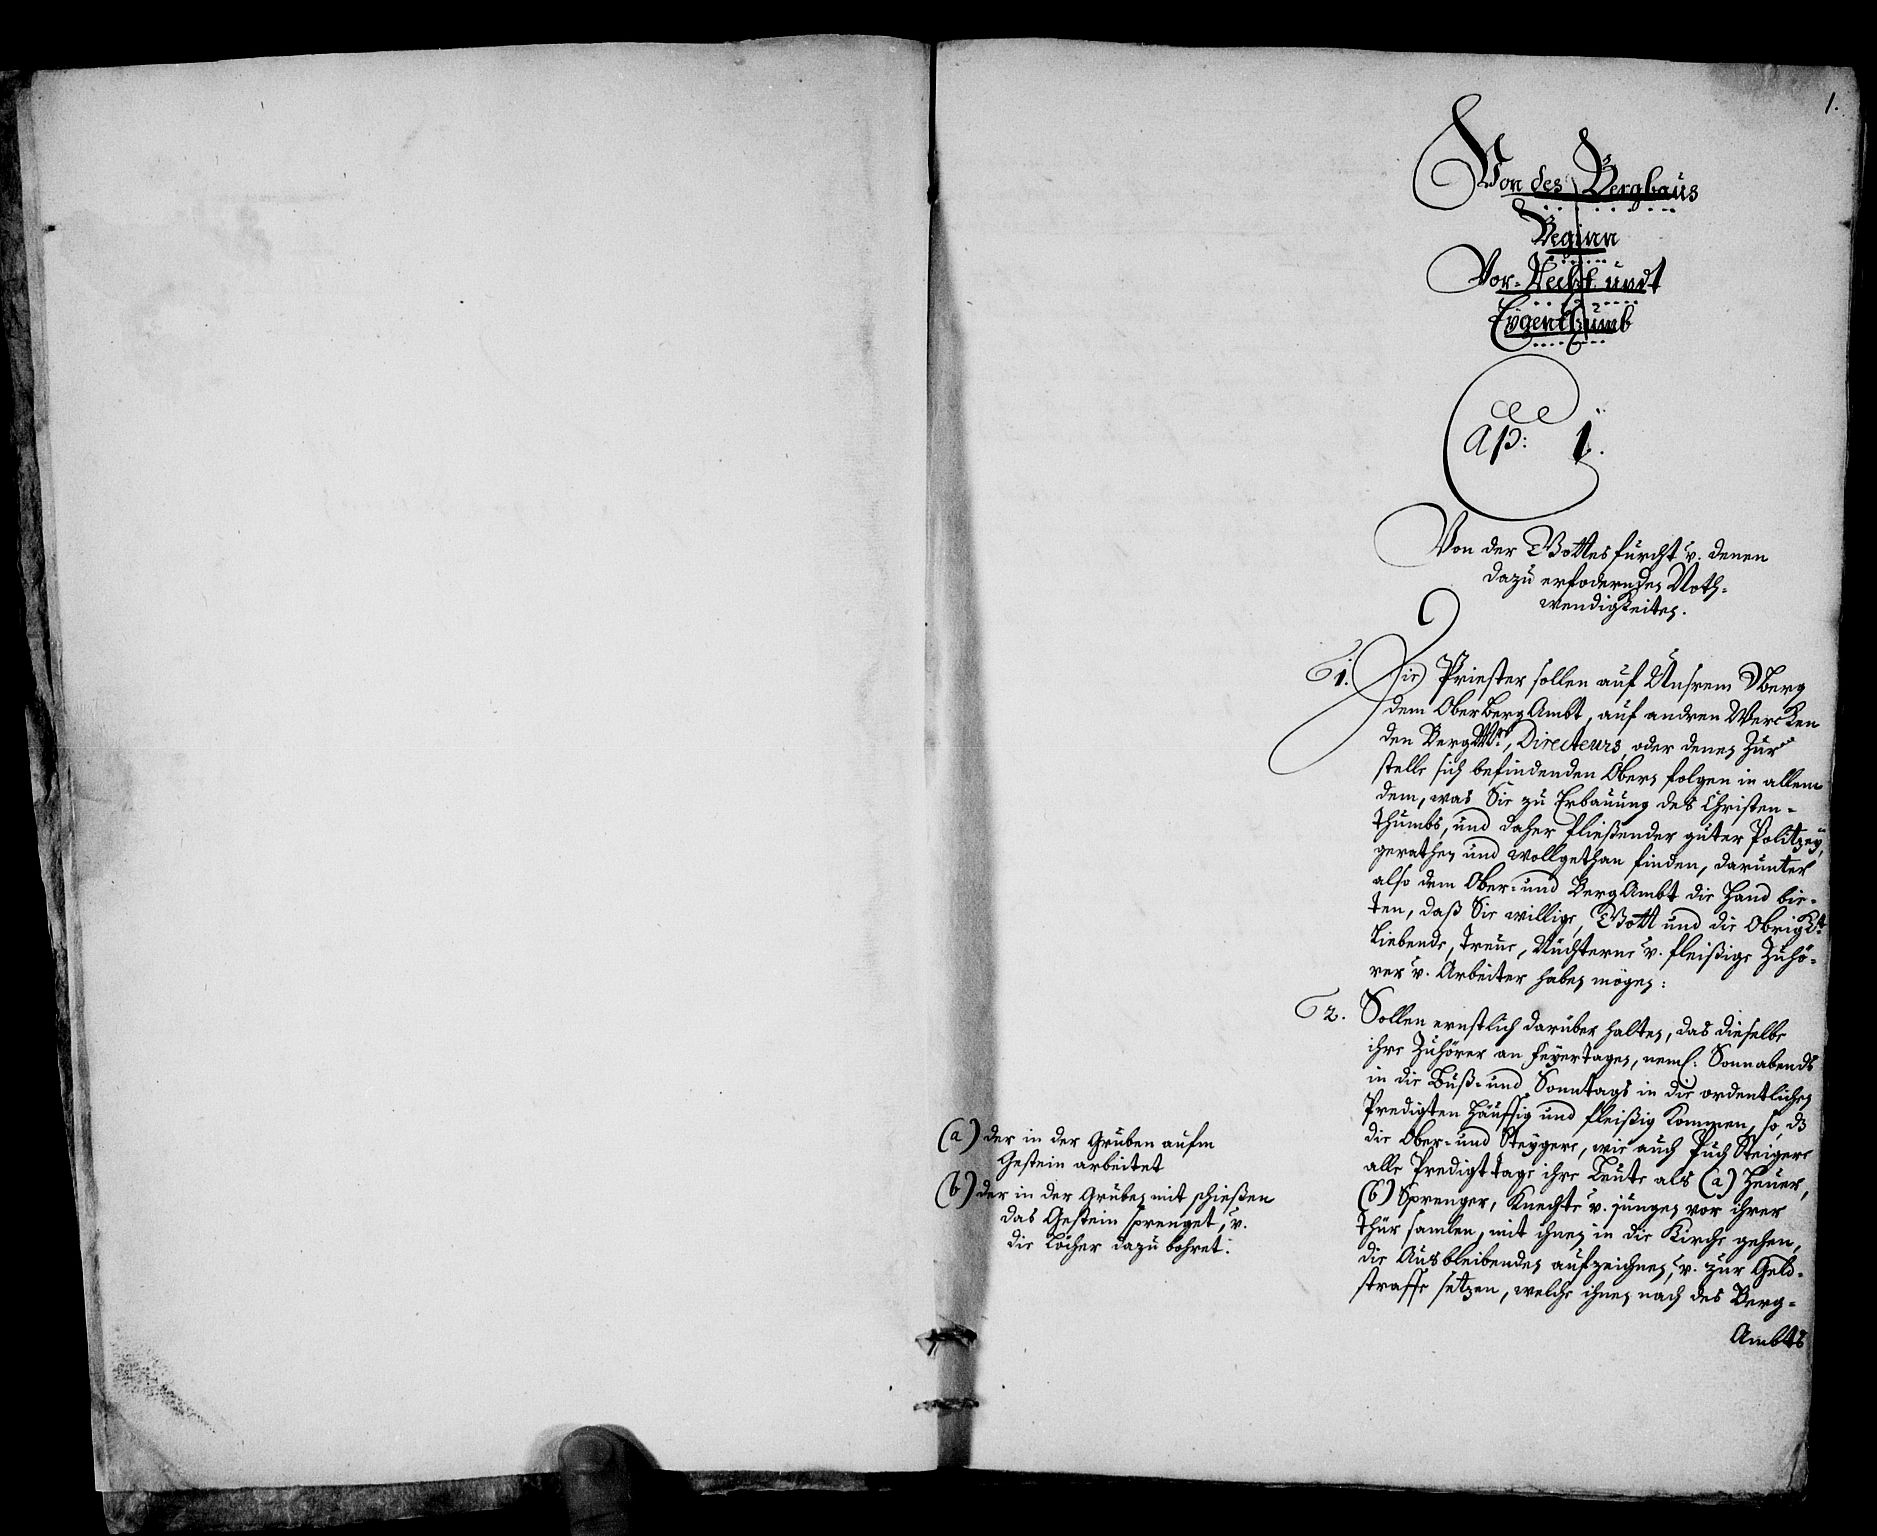 1.
Von des Bergbaus
Beginn
Vor-Recht undt
Eygenthumb
Cap: 1.
Von der Gottesfurcht v. denen
dazu erfodernden Noth-
wendigkeiten.
§ 1. Die Priester sollen auf Unsrem Sberg
dem OberBergAmbt, auf andren Wercken
den BergMr, Directeurs, oder denen Zur
stelle sich befindenden Obern folgen in allem
dem, was Sie zu Erbauung des Christen-
thumbs, und daher fließender guter Politzey,
gerathen und wollgethan finden, darunter
also dem Ober- und BergAmbt die Hand bie-
ten, daß Sie willige, Gott und die Obrigkt
liebende, treue, Nüchterne v. fleißige Zuhö-
rer v. Arbeiter haben mögen:
§ 2. Sollen ernstlich darüber halten, das dieselbe
ihre Zuhörer an Feyertagen, neml: Sonnabends
in die Buß- und Sonntags in die ordentlichen
Predigten häuffig und fleißig kommen, so, dz
die Ober- und Steygere, wie auch Puch Steigere
alle Predigttage ihre Leute als (a) Heuer,
(b) Sprenger, Knechte v. jungen vor ihrer
thür samlen, mit ihnen in die Kirche gehen,
die Ausbleibenden aufzeichnen, v. zur Geld-
straffe setzen, welche ihnen nach des Berg-
Ambts
(a) der in der Gruben aufm
Gestein arbeitet
(b) der in der Gruben mit schießen
das Gestein sprenget, v.
die Löcher dazu bohret.